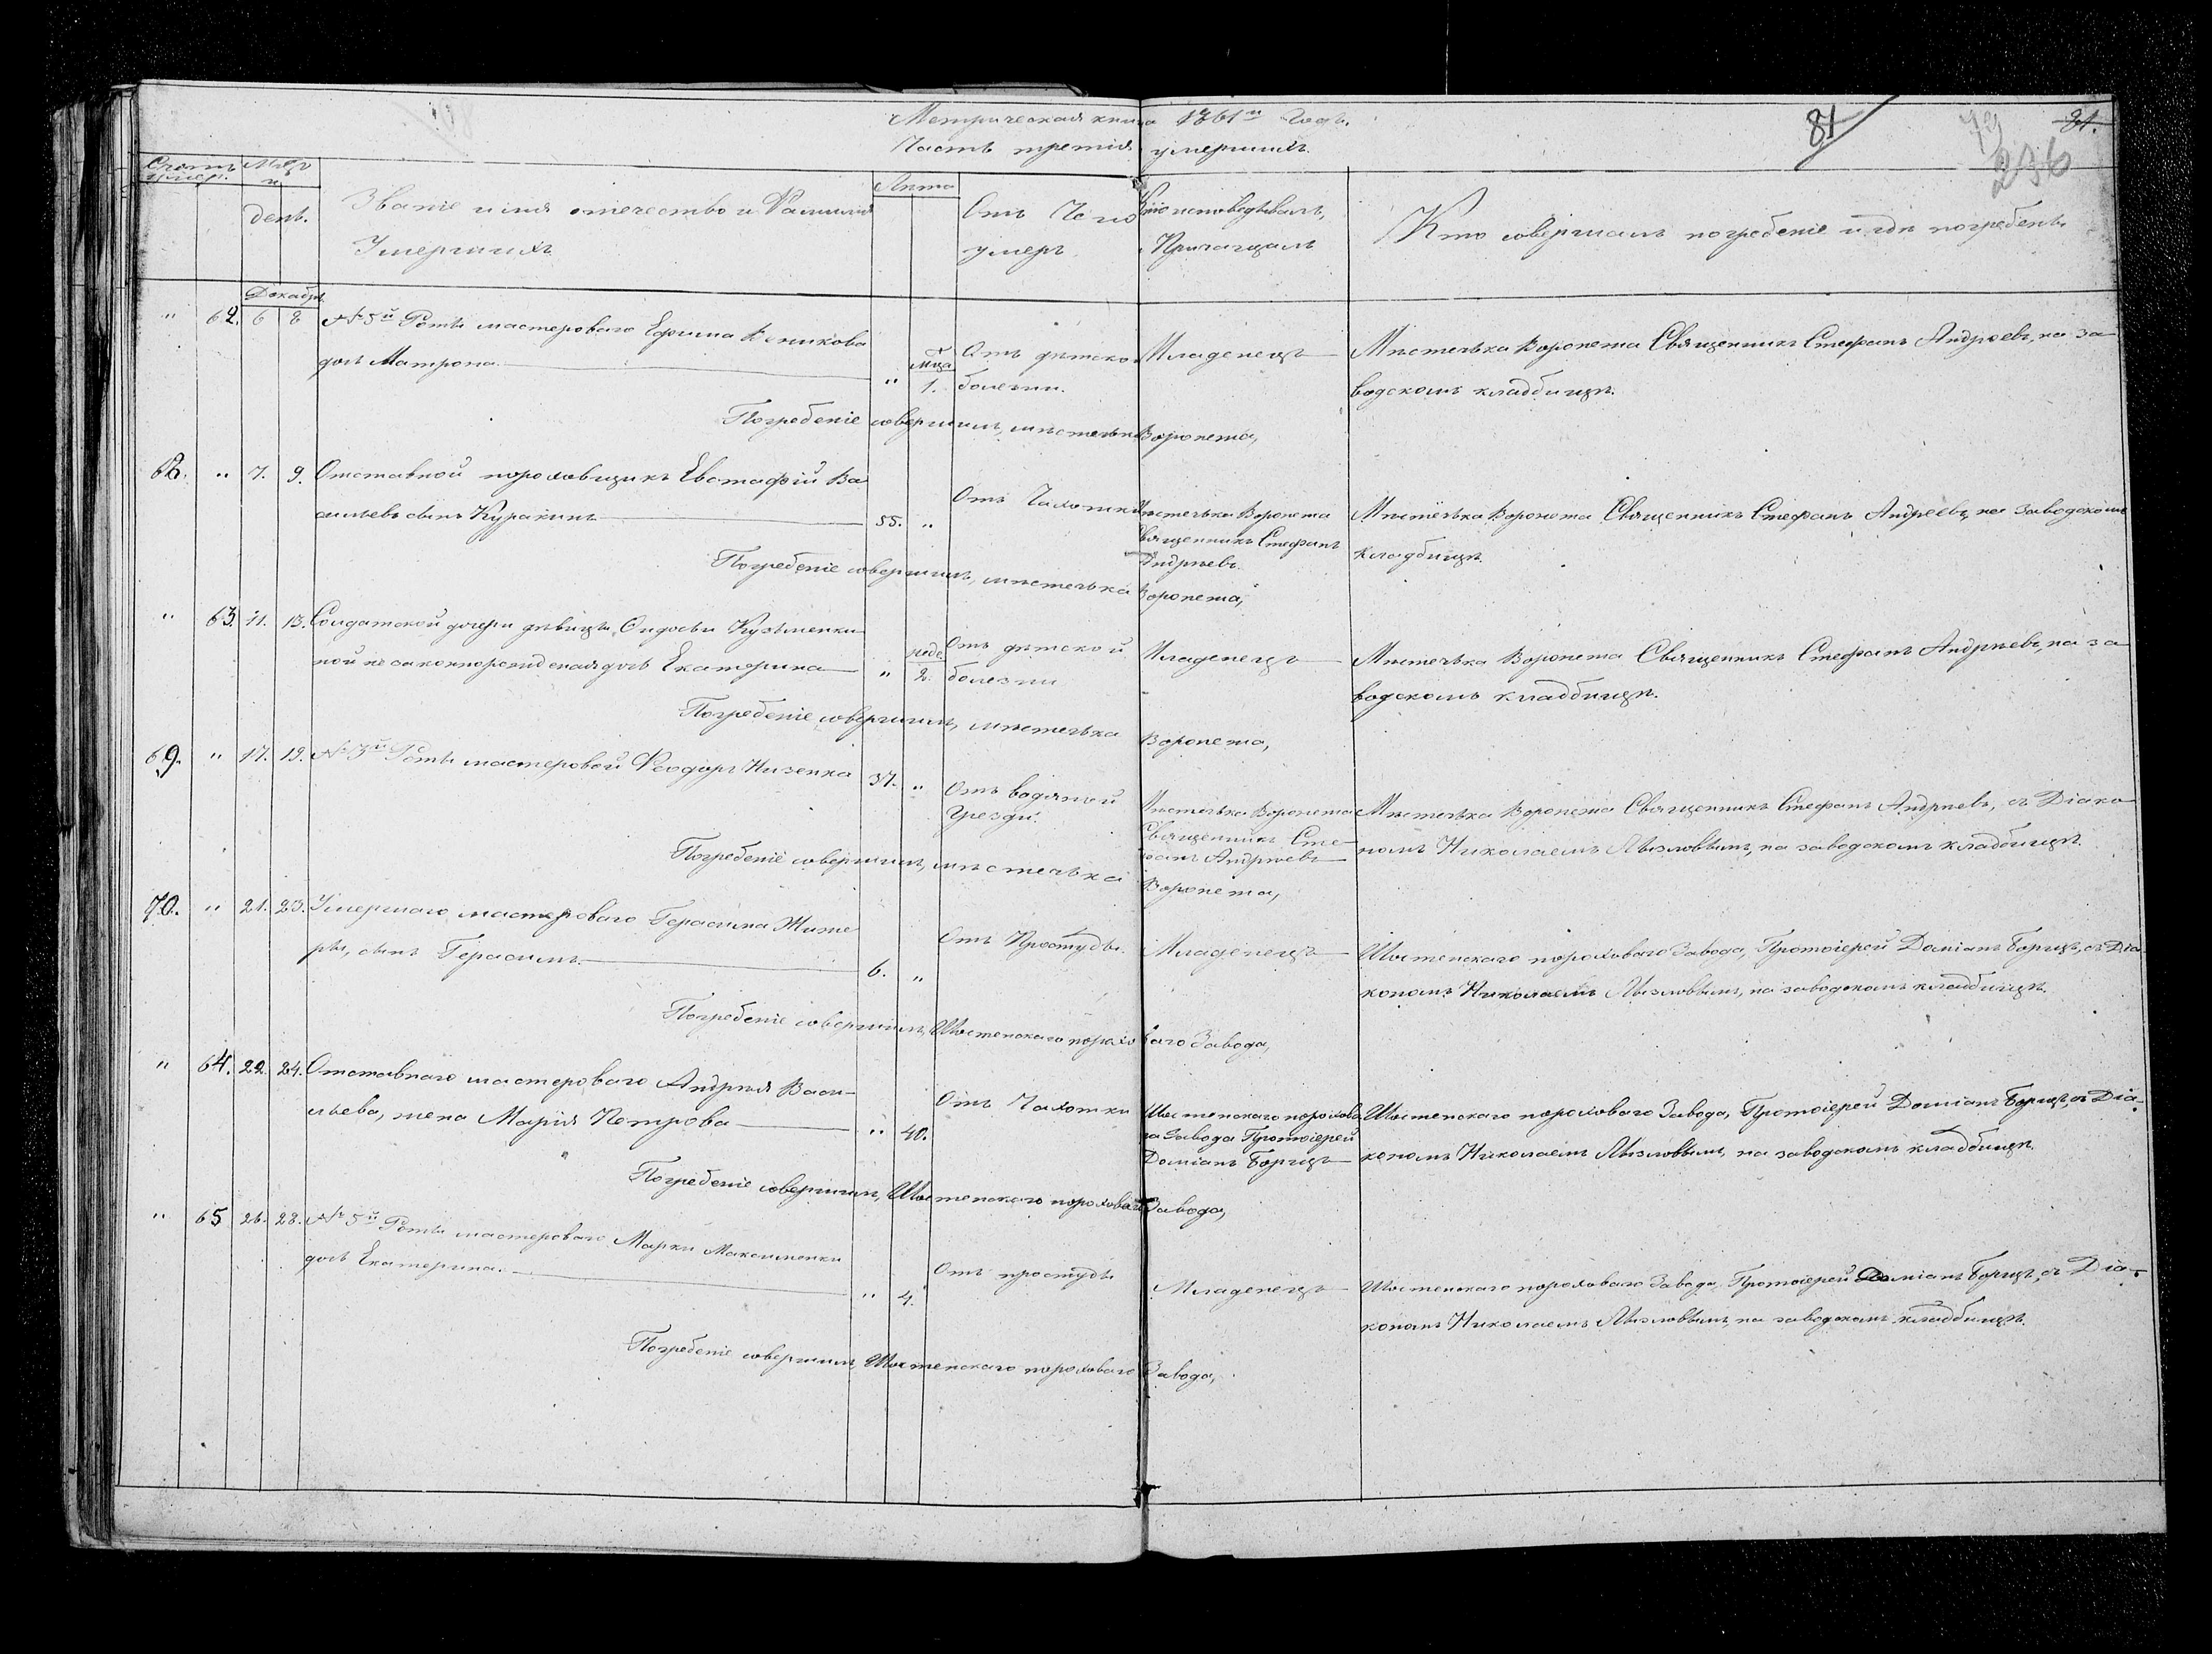 Метрическая книга 1861й Годъ.
Часть третія умершихъ.
81
79
81.
236
Счетъ умер.
Мцъ и день.
Званіе имя отечество и Фамилія Умершихъ
Лета
Отъ Чего умеръ
Кто исповедывалъ, Причащалъ
Кто совершалъ погребеніе и гдѣ погребенъ
Декабрь
" 62. 6 8 № 5й Роты мастероваго Ефима
дочь Матрона
" Мца 1.
Отъ дѣтской болезни.
Младенецъ
Мѣстечка Воронежа Священникъ Стефанъ Андреевъ, на за-
водскомъ кладбищѣ.
Погребеніе совершилъ, мѣстечка Воронежа,
68. " 7. 9. Отставной пороховщикъ Евстафій Ва
сильевъ сынъ Куракинъ
55. "
Отъ Чахотки
Мѣстечка Воронежа
Священникъ Стефанъ
Андреевъ.
Мѣстечка Воронежа Священникъ Стефанъ Андреевъ, на Заводскомъ
Кладбищѣ.
Погребеніе совершилъ, мѣстечка Воронежа,
" 63. 11. 13. Солдатской дочери дѣвицы Кузьменки
ной незаконнорожденная дочь Екатерина
" неде. 2.
Отъ дѣтской
болезни
Младенецъ
Мѣстечка Воронежа Священникъ Стефанъ Андреевъ, на за
водскомъ кладбищѣ.
Погребеніе совершилъ, мѣстечка Воронежа,
69. " 17. 19. № 3й Роты мастеровой Феодоръ Низенка
37. "
Отъ водяной
Груди.
Мѣстечка Воронежа
Священникъ Сте-
фанъ Андреевъ
Мѣстечка Воронежа Священникъ Стефанъ Андреевъ, съ Діако
номъ Николаемъ Лызловымъ, на заводскомъ кладбищѣ.
Погребеніе совершилъ, мѣстечка Воронежа,
70. " 21. 23. Умершаго мастероваго Герасима
сынъ Герасимъ.
6. "
Отъ Простуды.
Младенецъ
Шостенскаго пороховаго Завода, Протоіерей Даміанъ Борщъ, съ Діа
кономъ Николаемъ Лызловымъ, на заводскомъ кладбищѣ.
Погребеніе совершилъ, Шостенскаго пороховаго Завода,
" 64. 22. 24. Отставнаго мастероваго Андрея Васи-
льева, жена Марія Петрова
" 40.
Отъ Чахотки
Шостенскаго порохова
го Завода Протоіерей
Даміанъ Борщъ
Шостенскаго пороховаго Завода, Протоіерей Даміанъ Борщъ, съ Діа-
кономъ Николаемъ Лызловымъ, на заводскомъ кладбищѣ.
Погребеніе совершилъ, Шостенскаго пороховаго Завода,
" 65 26. 28. № 5й Роты мастероваго Марки Максименки
дочь Екатерина.
" 4.
Отъ простуды
Младенецъ
Шостенскаго пороховаго Завода, Протоіерей Даміанъ Борщъ, съ Діа-
кономъ Николаемъ Лызловымъ, на заводскомъ кладбищѣ.
Погребеніе совершилъ, Шостенскаго пороховаго Завода,